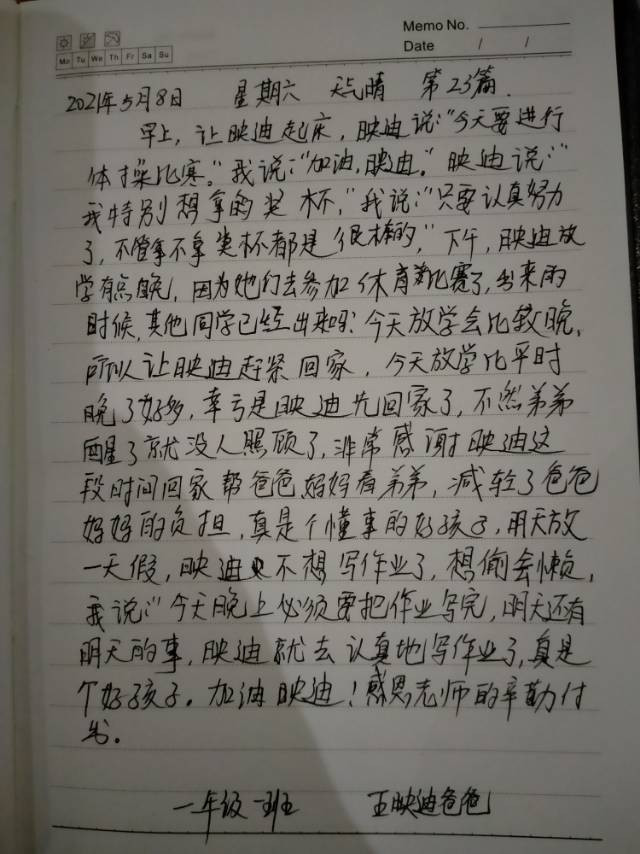 Memo No.
Date / /
Mo Tu We Th Fr Sa Su
2021年5月8日 星期六 天气晴 第23篇.
早上，让映迪起床，映迪说:“今天要进行
体操比赛。”我说:“加油,映迪。”映迪说:“
我特别想拿的奖杯,”我说:“只要认真努力
了，不管拿不拿奖杯都是很棒的,”下午，映迪放
学有点晚，因为她们去参加体育比赛了,出来的
时候,其他同学已经出来吗?今天放学会比较晚,
所以让映迪赶紧回家，今天放学比平时
晚了好多，幸亏是映迪先回家了，不然弟弟
醒了就没人照顾了,非常感谢映迪这
段时间回家帮爸爸妈妈看弟弟，减轻了爸爸
妈妈的负担，真是个懂事的好孩子，明天放
一天假，映迪又不想写作业了，想偷会懒，
我说:“今天晚上必须要把作业写完，明天还有
明天的事，映迪就去认真地写作业了,真是
个好孩子。加油映迪!感恩老师的辛勤付
出。
一年级一班 王映迪爸爸